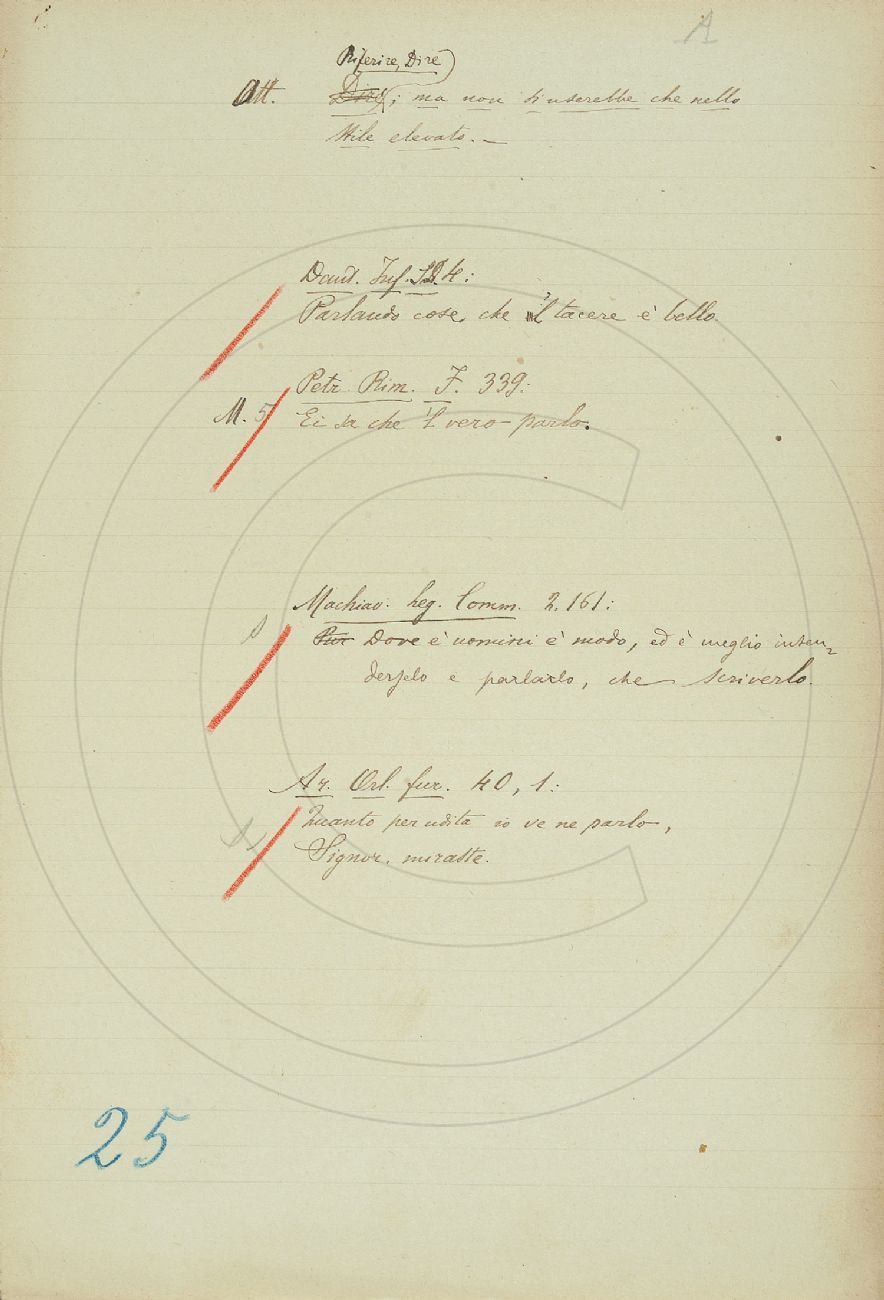 A
Riferire, Dire
Att. Dire; ma non si userebbe che nello
stile elevato. —
Dant. Inf. 4:
Parlando cose, che 'l tacere è bello.
Petr. Rim. F. 339:
M. 5 Ei sa che 'l vero parlo.
Machiav. Leg. Comm. 2. 161:
s Pur Dove è uomini è modo, ed è meglio inten-
derselo e parlarlo, che scriverlo.
Ar. Orl. fur. 40, 1:
Quanto per udita io ve ne parlo,
Signor, miraste.
25